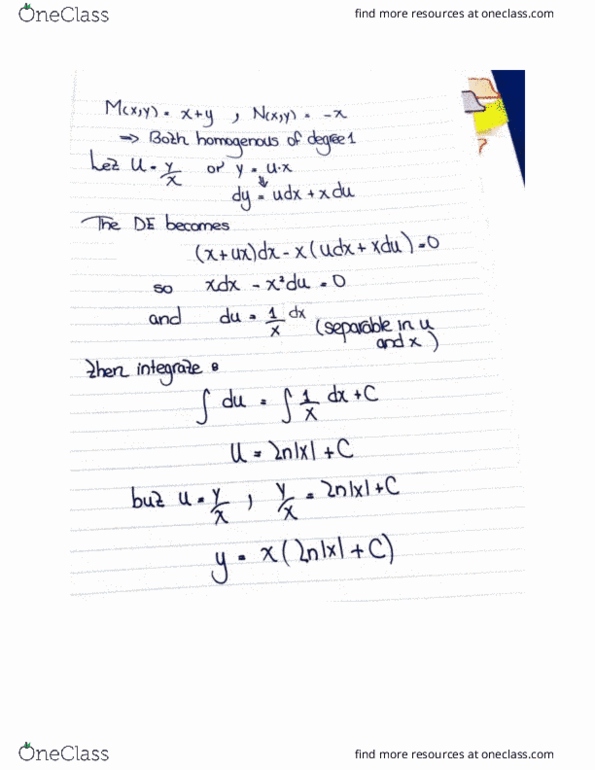 OneClass
find more resources at oneclass.com
M(x,y) = x+y , N(x,y) = -x
⇒ Both homogenous of degree 1
Let u = y/x or y = u·x
dy = udx + xdu
The DE becomes
(x+ux)dx - x(udx + xdu) = 0
so xdx - x²du = 0
and du = 1/x dx (separable in u
and x)
then integrate :
∫ du = ∫ 1/x dx + C
u = ln|x| + C
but u = y/x , y/x = ln|x| + C
y = x(ln|x| + C)
OneClass
find more resources at oneclass.com